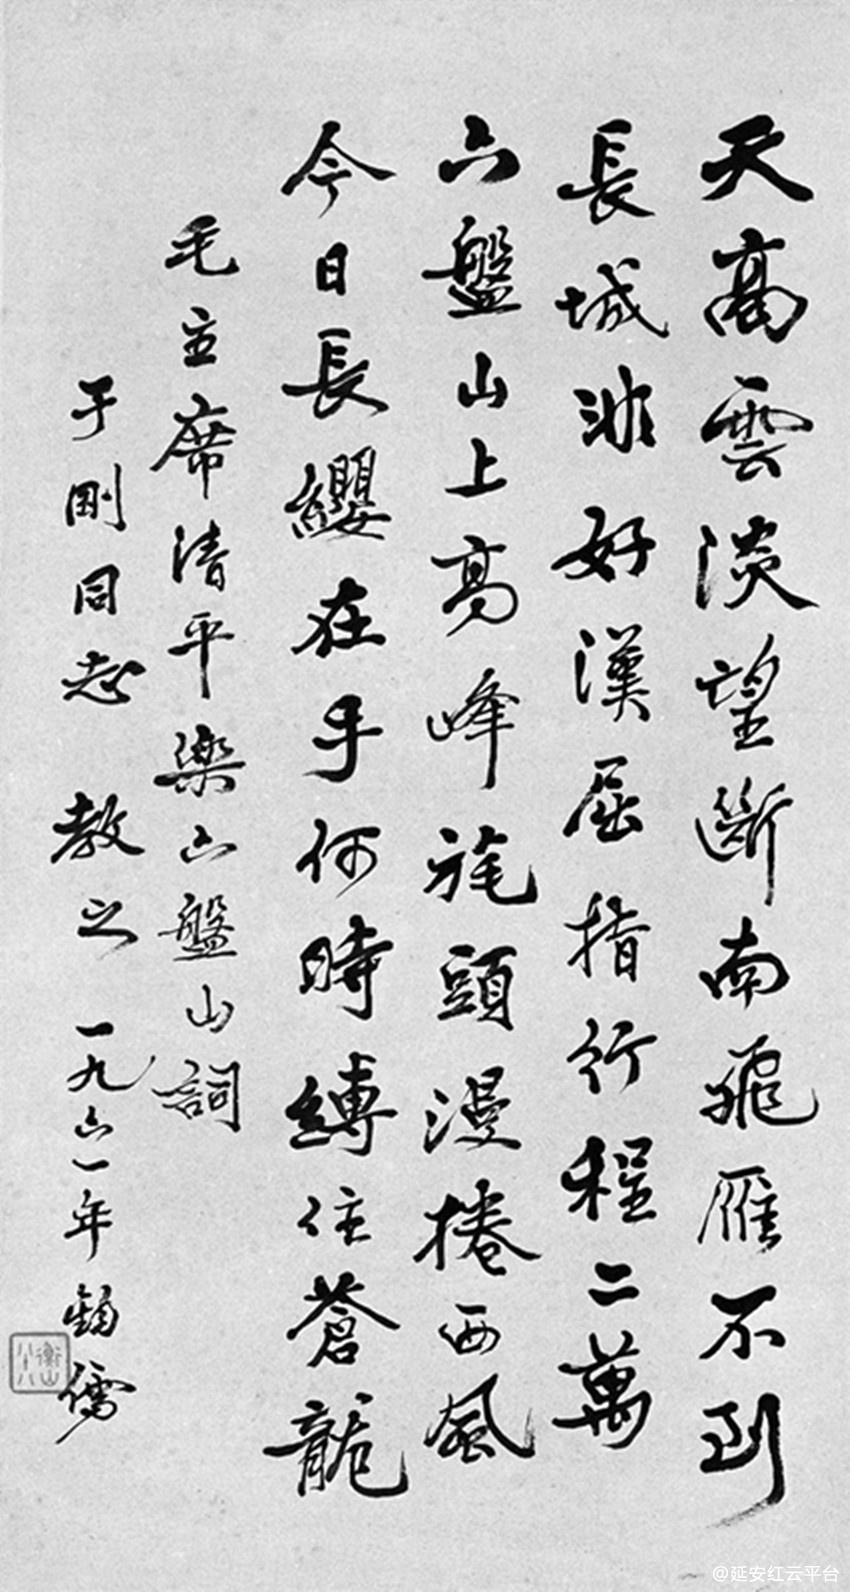 天高雲淡望斷南飛雁不到
長城非好漢屈指行程二萬
六盤山上高峰旄頭漫捲西風
今日長纓在手何時縛住蒼龍
毛主席清平樂六盤山詞
于剛同志 教之 一九六一年 鈞儒
衡山
八十八
@延安红云平台